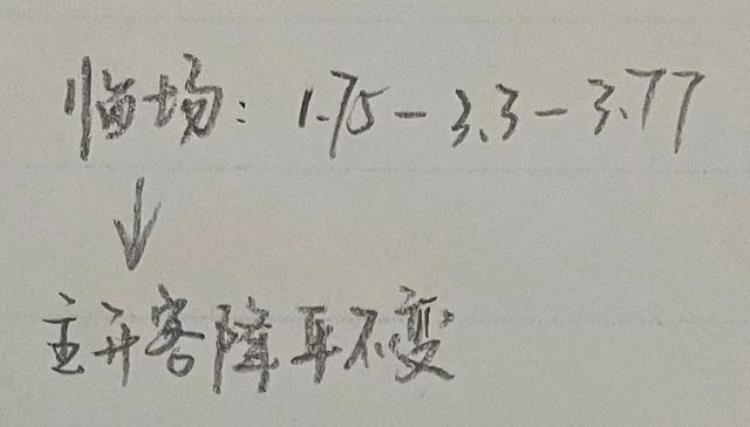 临场: 1.75-3.3-3.77
↓
主升客降平不变